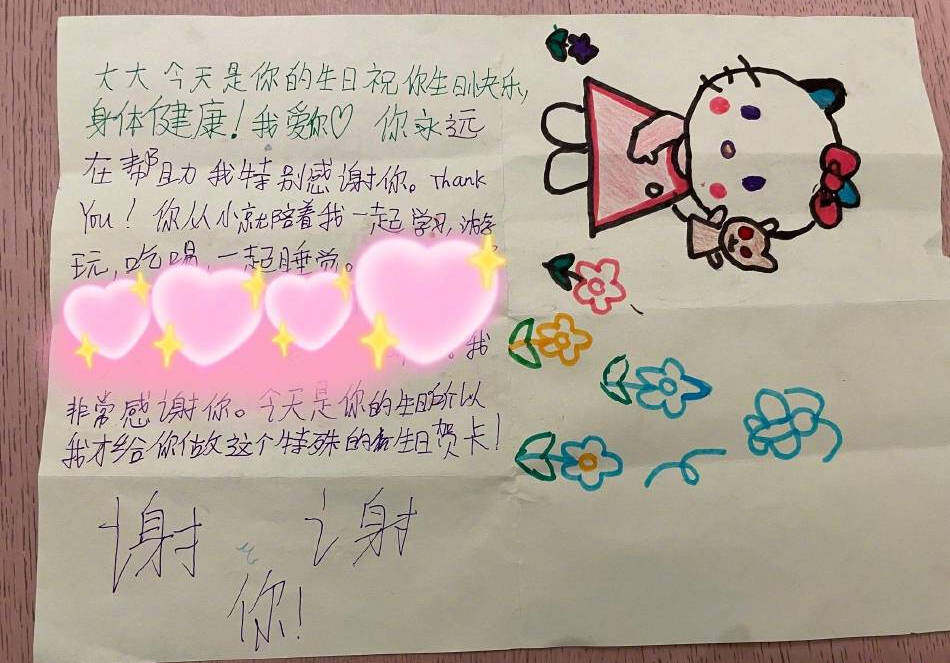 大大今天是你的生日祝你生日快乐,
身体健康!我爱你♡ 你永远
在帮助我特别感谢你。Thank
You!你从小就陪着我一起学习,游
玩,吃喝,一起睡觉。
。我
非常感谢你。今天是你的生日所以
我才给你做这个特殊的生日贺卡!
谢 谢
你!